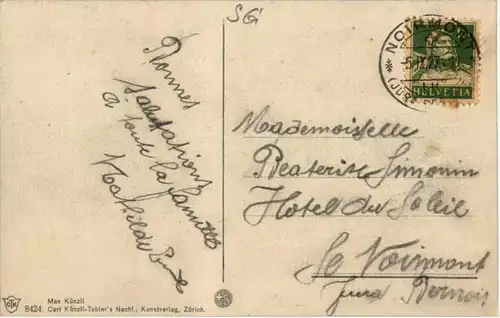 SG
Bonnes
Salutations
à toute
la famille
Mathilde
NOIRMONT
HELVETIA
Mademoiselle
Beatrise Simonin
Hotel du Soleil
Le Noirmont
Jura Bernois
Max Künzli
8424 Carl Künzli-Tobler's Nachf., Kunstverlag, Zürich.